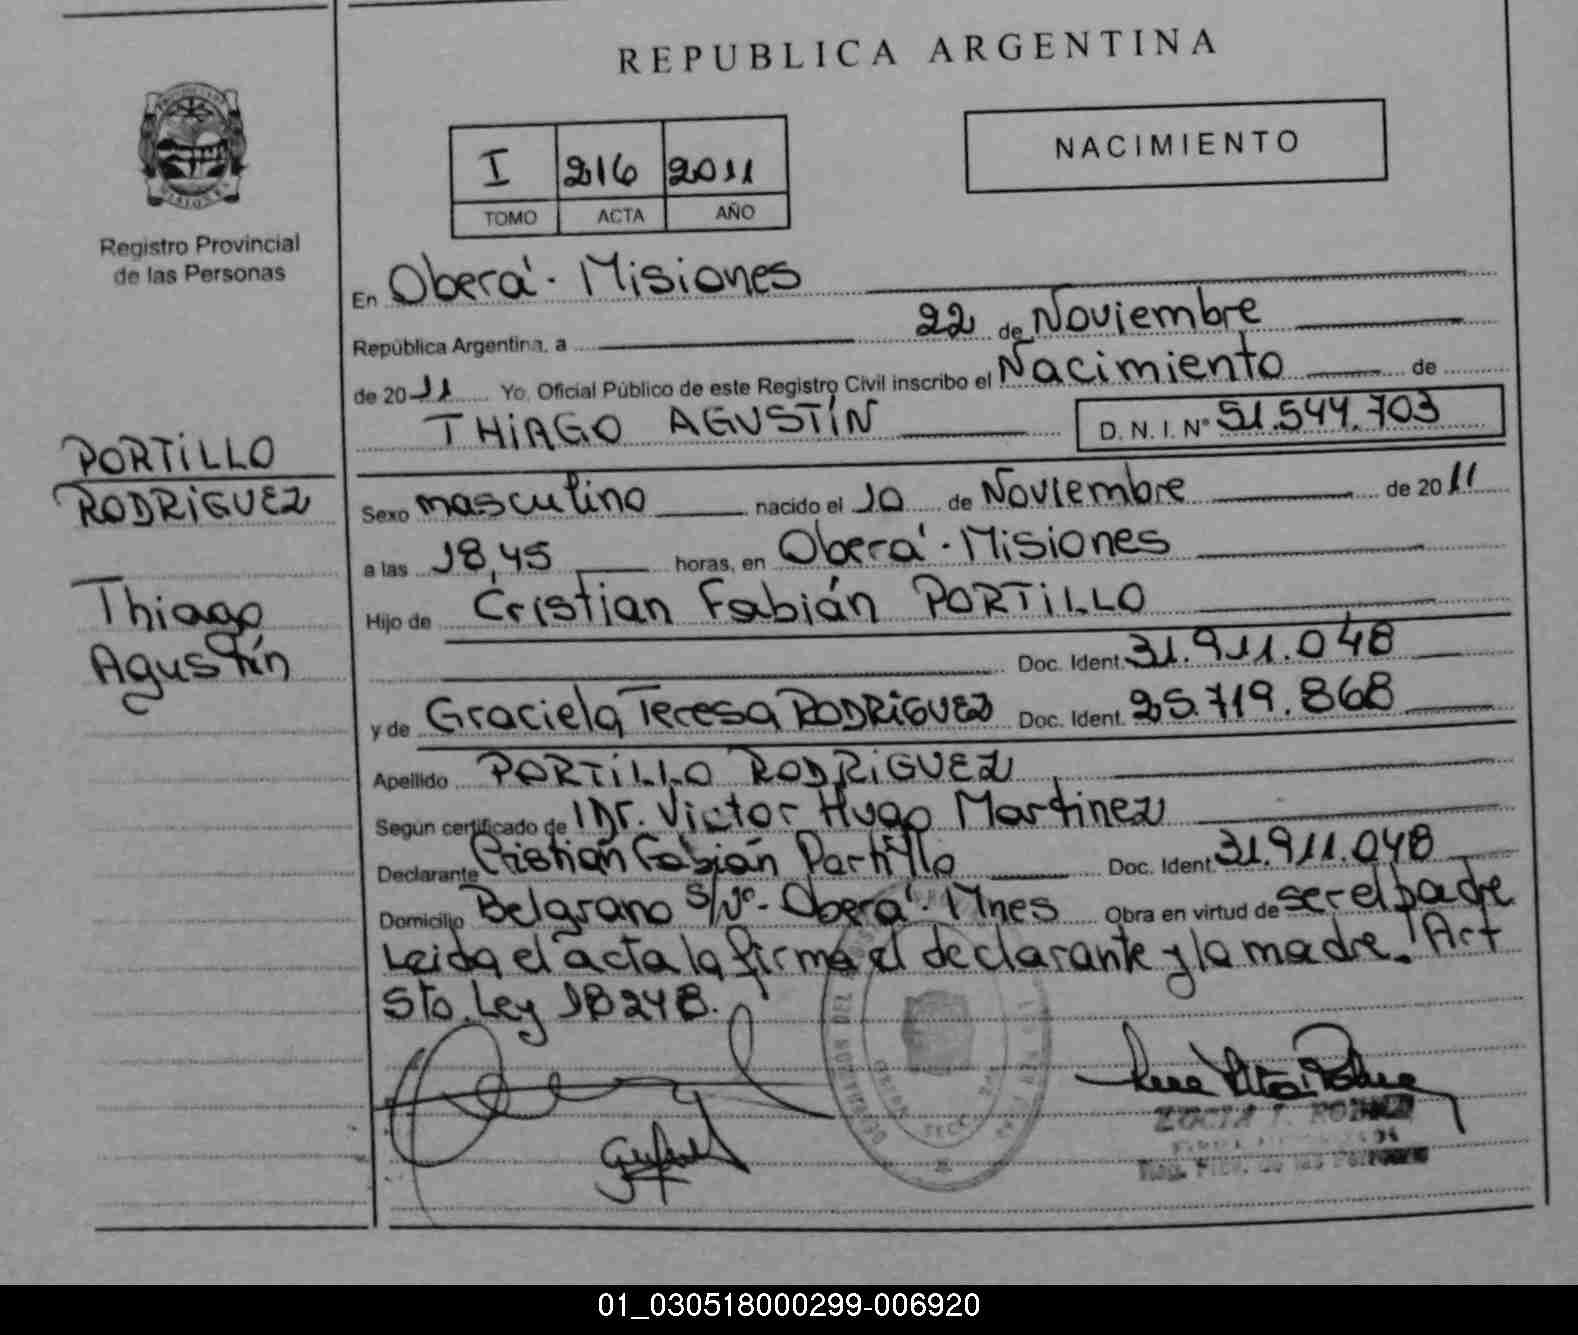 REPUBLICA ARGENTINA
NACIMIENTO
I 216 2011
TOMO ACTA AÑO
Registro Provincial
de las Personas
PORTILLO
RODRIGUEZ
Thiago
Agustín
En Oberá - Misiones
República Argentina, a 22 de Noviembre
de 2011 Yo, Oficial Público de este Registro Civil inscribo el Nacimiento de
THIAGO AGUSTÍN D.N.I. Nº 51.544.703
Sexo masculino nacido el 10 de Noviembre de 2011
a las 18,45 horas, en Oberá - Misiones
Hijo de Cristian Fabián PORTILLO
Doc. Ident. 31.911.048
y de Graciela Teresa RODRIGUEZ Doc. Ident. 25.719.868
Apellido PORTILLO RODRIGUEZ
Según certificado de Dr. Victor Hugo Martinez
Declarante Cristian Fabián Portillo Doc. Ident. 31.911.048
Domicilio Belgrano s/Nº - Oberá - Mnes Obra en virtud de ser el padre
Leida el acta la firma el declarante y la madre. Art
5to. Ley 18248.
01_030518000299-006920